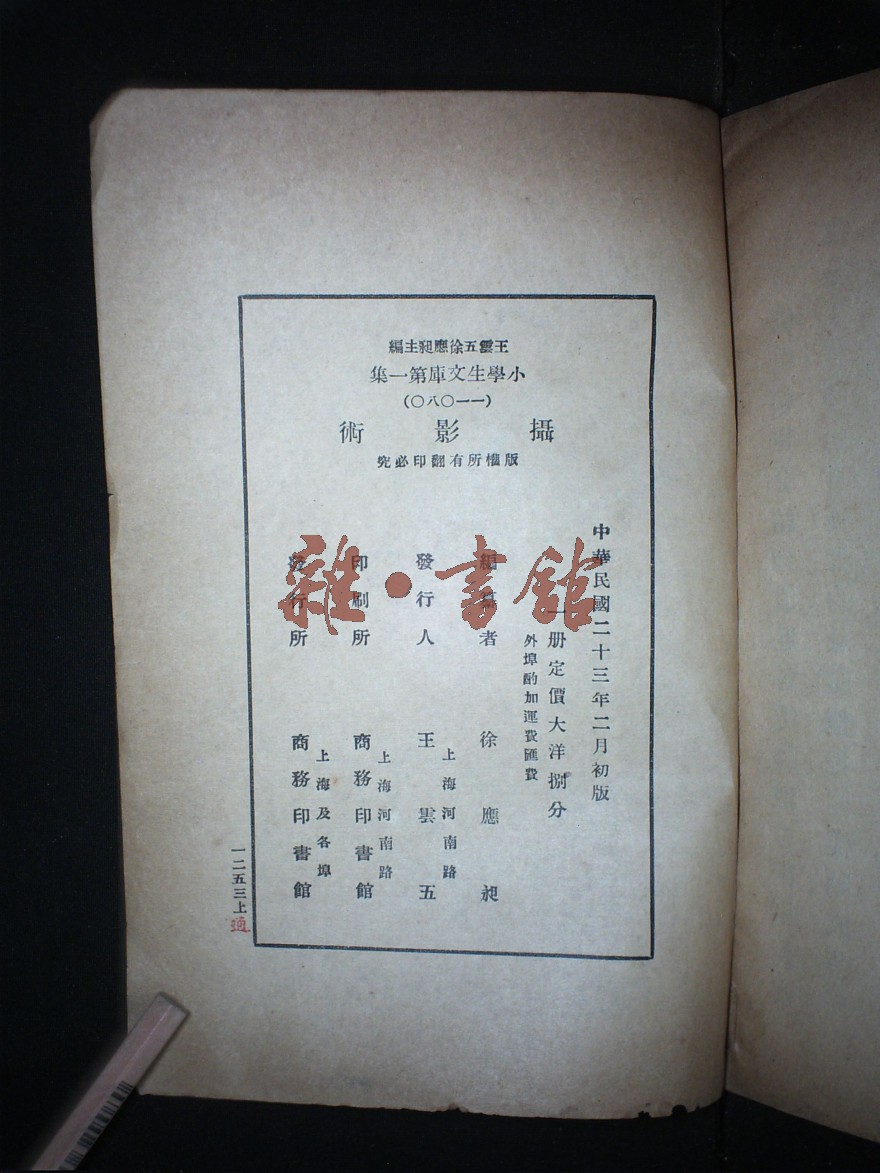 王雲五徐應昶主編
小學生文庫第一集
(一一〇八〇)
攝影術
版權所有翻印必究
中華民國二十三年二月初版
一册定價大洋捌分
外埠酌加運費匯費
編纂者 徐應昶
發行人 王雲五
上海河南路
印刷所 商務印書館
上海河南路
發行所 商務印書館
上海及各埠
一二五三上
雜·書館